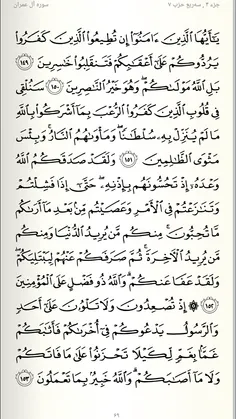 جزء ۴، سه‌ربع حزب ۷
سوره آل عمران
يَٰٓأَيُّهَا ٱلَّذِينَ ءَامَنُوٓاْ إِن تُطِيعُواْ ٱلَّذِينَ كَفَرُواْ
يَرُدُّوكُمْ عَلَىٰٓ أَعْقَٰبِكُمْ فَتَنقَلِبُواْ خَٰسِرِينَ ١٤٩
بَلِ ٱللَّهُ مَوْلَىٰكُمْ وَهُوَ خَيْرُ ٱلنَّٰصِرِينَ ١٥٠ سَنُلْقِي
فِي قُلُوبِ ٱلَّذِينَ كَفَرُواْ ٱلرُّعْبَ بِمَآ أَشْرَكُواْ بِٱللَّهِ
مَا لَمْ يُنَزِّلْ بِهِۦ سُلْطَٰنًا وَمَأْوَىٰهُمُ ٱلنَّارُ وَبِئْسَ
مَثْوَى ٱلظَّٰلِمِينَ ١٥١ وَلَقَدْ صَدَقَكُمُ ٱللَّهُ
وَعْدَهُۥٓ إِذْ تَحُسُّونَهُم بِإِذْنِهِۦ حَتَّىٰٓ إِذَا فَشِلْتُمْ
وَتَنَٰزَعْتُمْ فِي ٱلْأَمْرِ وَعَصَيْتُم مِّنۢ بَعْدِ مَآ أَرَىٰكُم
مَّا تُحِبُّونَ مِنكُم مَّن يُرِيدُ ٱلدُّنْيَا وَمِنكُم
مَّن يُرِيدُ ٱلْأٓخِرَةَ ثُمَّ صَرَفَكُمْ عَنْهُمْ لِيَبْتَلِيَكُمْ
وَلَقَدْ عَفَا عَنكُمْ وَٱللَّهُ ذُو فَضْلٍ عَلَى ٱلْمُؤْمِنِينَ
١٥٢ ۞ إِذْ تُصْعِدُونَ وَلَا تَلْوُۥنَ عَلَىٰٓ أَحَدٍ
وَٱلرَّسُولُ يَدْعُوكُمْ فِيٓ أُخْرَىٰكُمْ فَأَثَٰبَكُمْ
غَمَّۢا بِغَمٍّ لِّكَيْلَا تَحْزَنُواْ عَلَىٰ مَا فَاتَكُمْ
وَلَا مَآ أَصَٰبَكُمْ وَٱللَّهُ خَبِيرٌۢ بِمَا تَعْمَلُونَ ١٥٣
۶۹